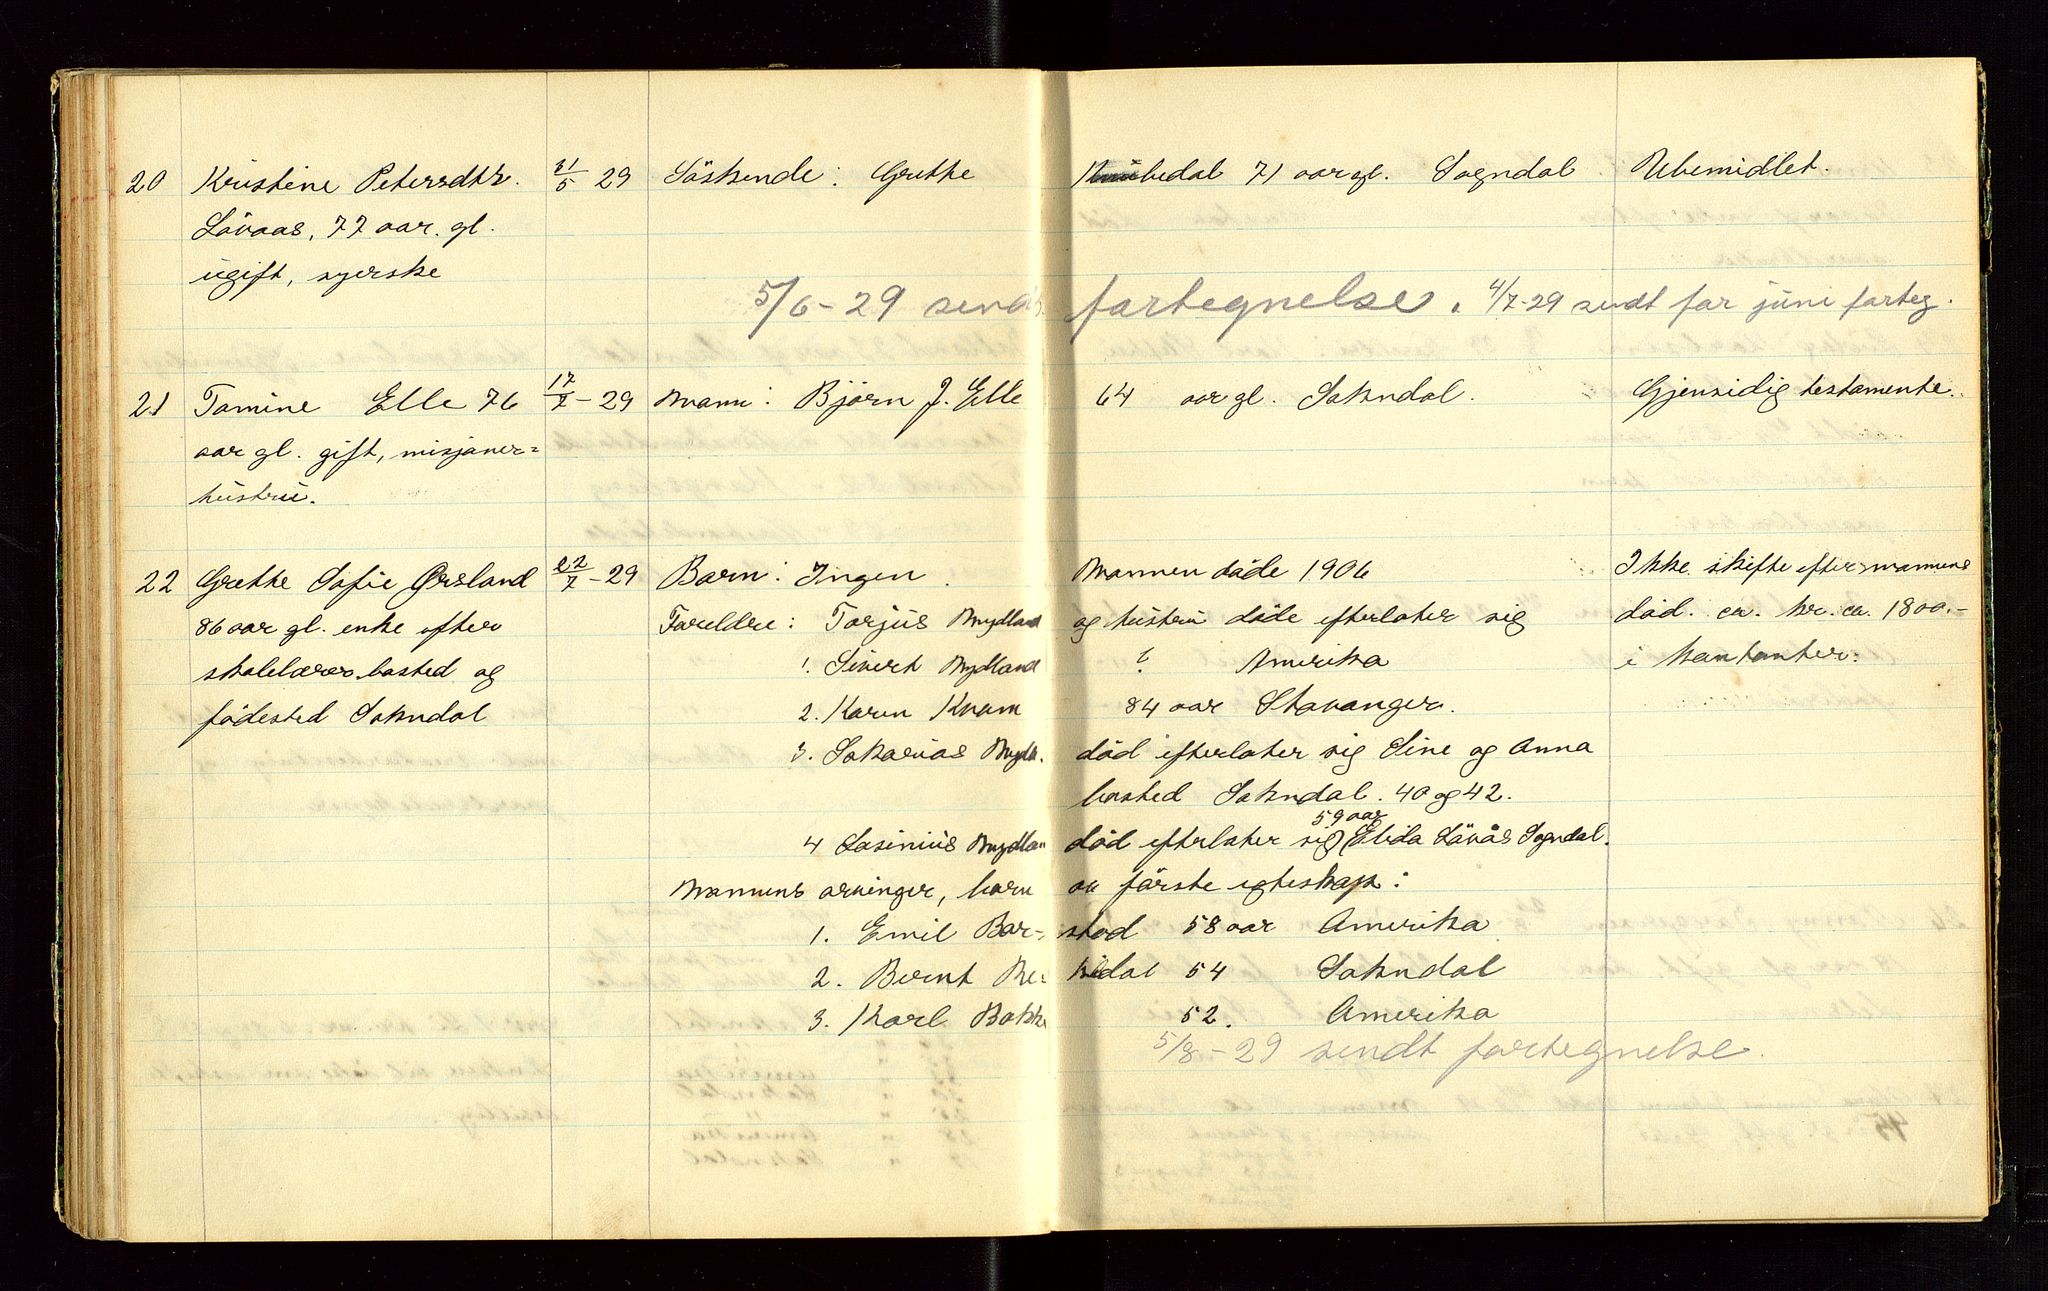 20 Kristine Petersdtr. 31/5 29 Söskende: Grethe bedal 71 aar gl. Sogndal Ubemidlet.
Lövaas, 77 aar. gl.
ugift, syerske
5/6-29 sendt fortegnelse. 4/7-29 sendt for juni forteg.
21 Tomine Elle 76 17/7-29 Mann: Björn J. Elle 64 aar gl. Sokndal. Gjensidig testamente.
aar gl. gift, misjonær=
hustru.
22 Grethe Sofie Ørsland 22/7-29 Barn: Ingen. Mannen döde 1906 Ikke skifte efter mannens
86 aar gl. enke efter Foreldre: Torjus Mydland og hustru döde efterlater sig död. ca. kr. ca. 1800.-
skolelærer bosted og 1. Sivert Mydland ? Amerika i kontanter.
födested Sokndal 2. Karen Kvam 84 aar Stavanger.
3. Sakarias Mydl. död efterlater sig Sine og Anna
bosted Sokndal. 40 og 42.
59 aar
4 Rasmus Mydlan död efterlater sig Elida Lövås Sogndal.
Mannens arvinger, barn av förste egteskap:
1. Emil Bar- stad 58 aar Amerika
2. Bernt Re- kedal 54 Sokndal
3. Karl Bakk 52. Amerika
5/8-29 sendt fortegnelse.